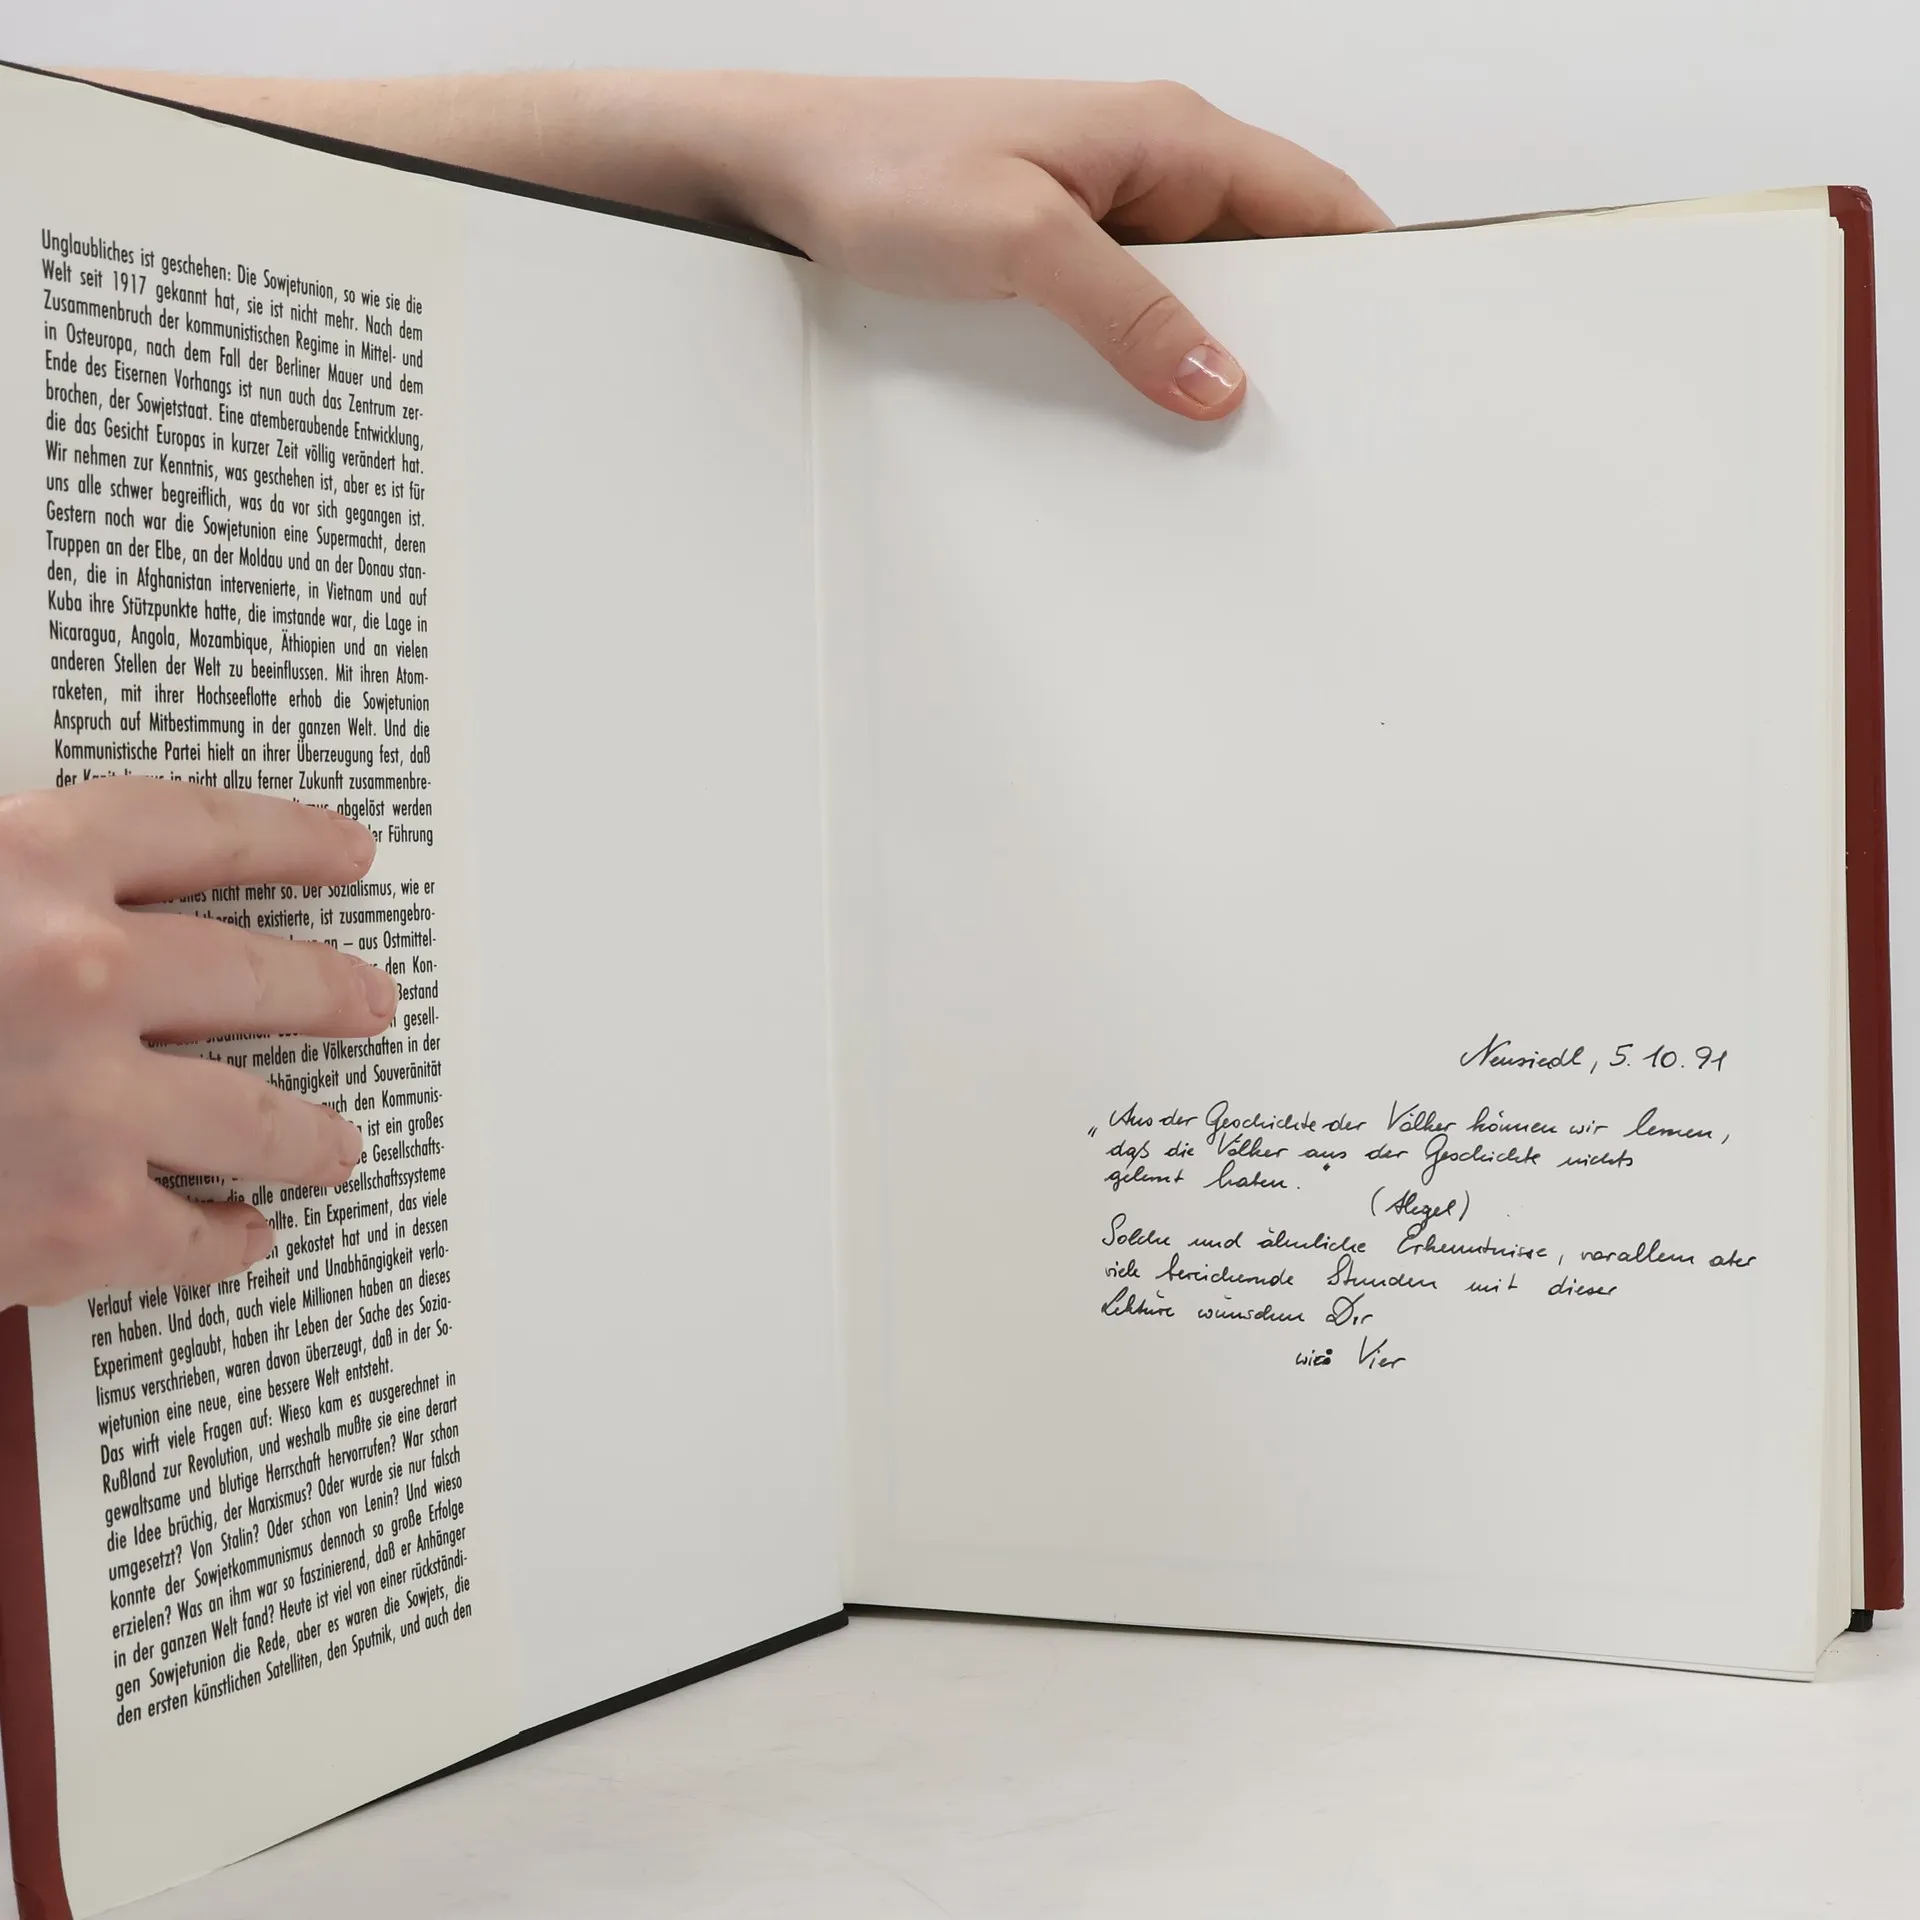 Unglaubliches ist geschehen: Die Sowjetunion, so wie sie die
Welt seit 1917 gekannt hat, sie ist nicht mehr. Nach dem
Zusammenbruch der kommunistischen Regime in Mittel- und
in Osteuropa, nach dem Fall der Berliner Mauer und dem
Ende des Eisernen Vorhangs ist nun auch das Zentrum zer-
brochen, der Sowjetstaat. Eine atemberaubende Entwicklung,
die das Gesicht Europas in kurzer Zeit völlig verändert hat.
Wir nehmen zur Kenntnis, was geschehen ist, aber es ist für
uns alle schwer begreiflich, was da vor sich gegangen ist.
Gestern noch war die Sowjetunion eine Supermacht, deren
Truppen an der Elbe, an der Moldau und an der Donau stan-
den, die in Afghanistan intervenierte, in Vietnam und auf
Kuba ihre Stützpunkte hatte, die imstande war, die Lage in
Nicaragua, Angola, Mozambique, Äthiopien und an vielen
anderen Stellen der Welt zu beeinflussen. Mit ihren Atom-
raketen, mit ihrer Hochseeflotte erhob die Sowjetunion
Anspruch auf Mitbestimmung in der ganzen Welt. Und die
Kommunistische Partei hielt an ihrer Überzeugung fest, daß
der Kapitalismus in nicht allzu ferner Zukunft zusammenbre-
abgelöst werden
der Führung
nicht mehr so. Der Sozialismus, wie er
existierte, ist zusammengebro-
an – aus Ostmittel-
den Kon-
Bestand
gesell-
nur melden die Völkerschaften in der
und Souveränität
auch den Kommunis-
ist ein großes
Gesellschafts-
die alle anderen Gesellschaftsysteme
sollte. Ein Experiment, das viele
gekostet hat und in dessen
Verlauf viele Völker ihre Freiheit und Unabhängigkeit verlo-
ren haben. Und doch, auch viele Millionen haben an dieses
Experiment geglaubt, haben ihr Leben der Sache des Sozia-
lismus verschrieben, waren davon überzeugt, daß in der So-
wjetunion eine neue, eine bessere Welt entsteht.
Das wirft viele Fragen auf: Wieso kam es ausgerechnet in
Rußland zur Revolution, und weshalb mußte sie eine derart
gewaltsame und blutige Herrschaft hervorrufen? War schon
die Idee brüchig, der Marxismus? Oder wurde sie nur falsch
umgesetzt? Von Stalin? Oder schon von Lenin? Und wieso
konnte der Sowjetkommunismus dennoch so große Erfolge
erzielen? Was an ihm war so faszinierend, daß er Anhänger
in der ganzen Welt fand? Heute ist viel von einer rückständi-
gen Sowjetunion die Rede, aber es waren die Sowjets, die
den ersten künstlichen Satelliten, den Sputnik, und auch den
Neusiedl, 5. 10. 91
„Aus der Geschichte der Völker können wir lernen,
daß die Völker aus der Geschichte nichts
gelernt haben."
(Hegel)
Solche und ähnliche Erkenntnisse, vorallem aber
viele bereichernde Stunden mit dieser
Lektüre wünschen Dir
wir Vier